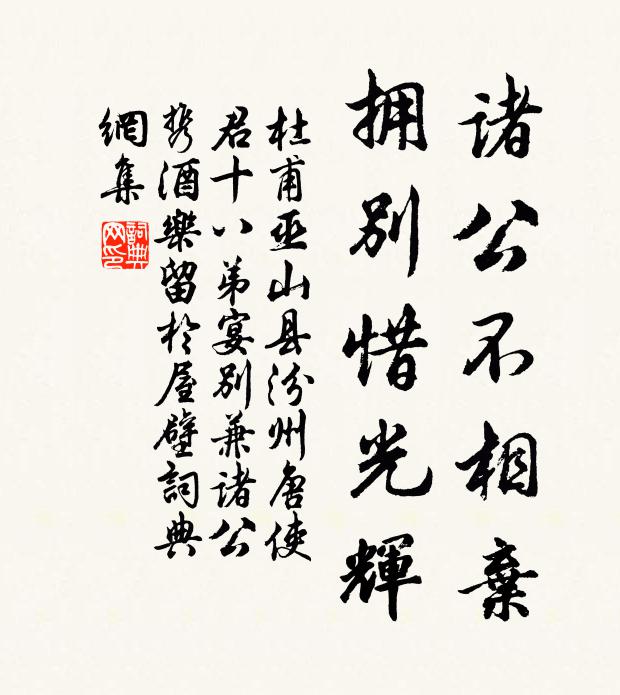 诸公不相棄
拥别惜光輝
杜甫巫山县汾州唐使
君十八弟宴别兼诸公
携酒樂留於屋壁詞典
網集
詞典網印